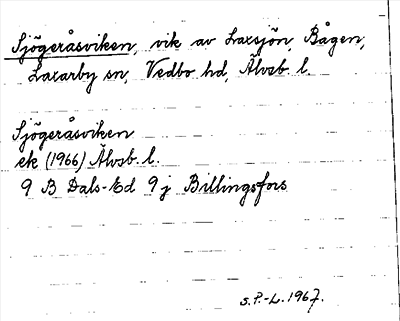 Sjögeråsviken, vik av Laxsjön, Bågen,
Laxarby sn, Vedbo hd, Älvsb. l.
Sjögeråsviken
ek (1966) Älvsb. l.
9 B Dals-Ed 9 j Billingsfors
S.P.-L. 1967.